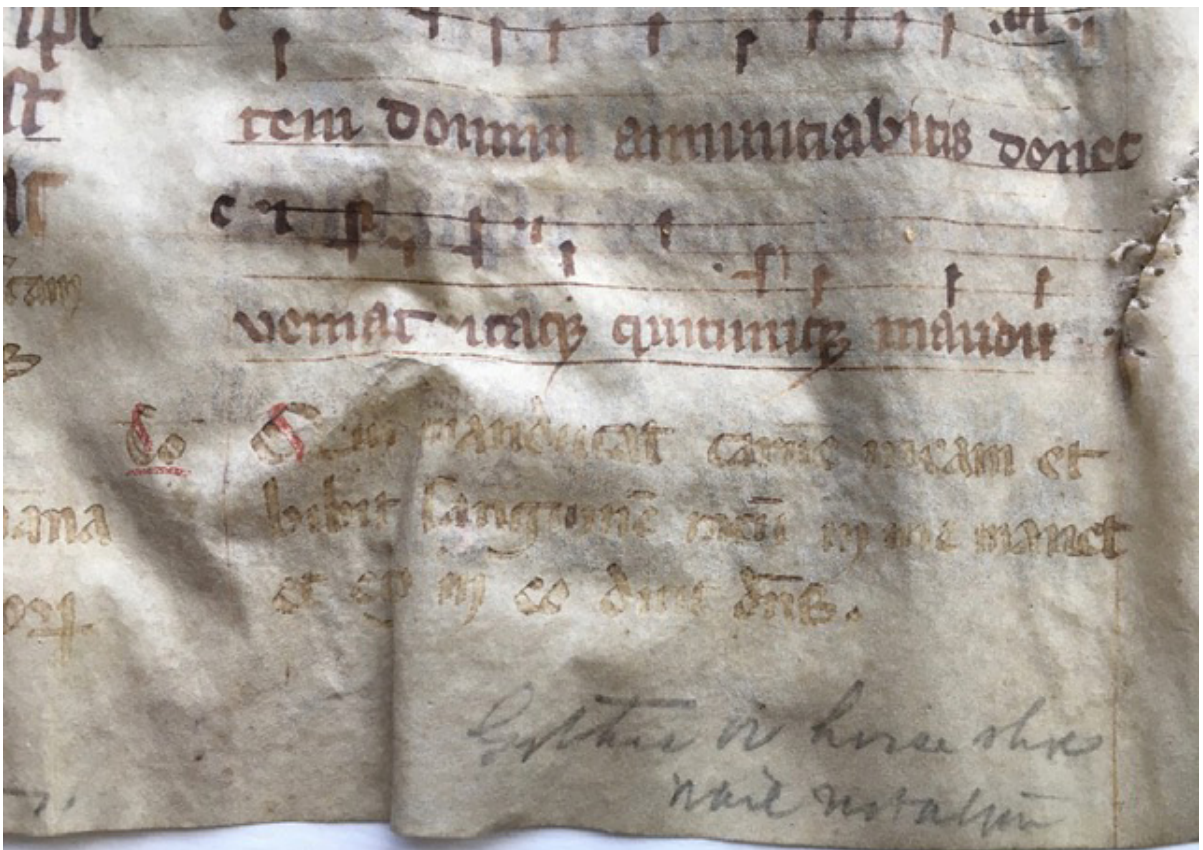 tem domini annuntiabitis donec
veniat itaqꝫ quicumqꝫ
Co Qui manducat carnē meam et
bibit sanguinē meū in me manet
et ego in eo dicit dn̄s.
Gothic or horse shoe
nail notation